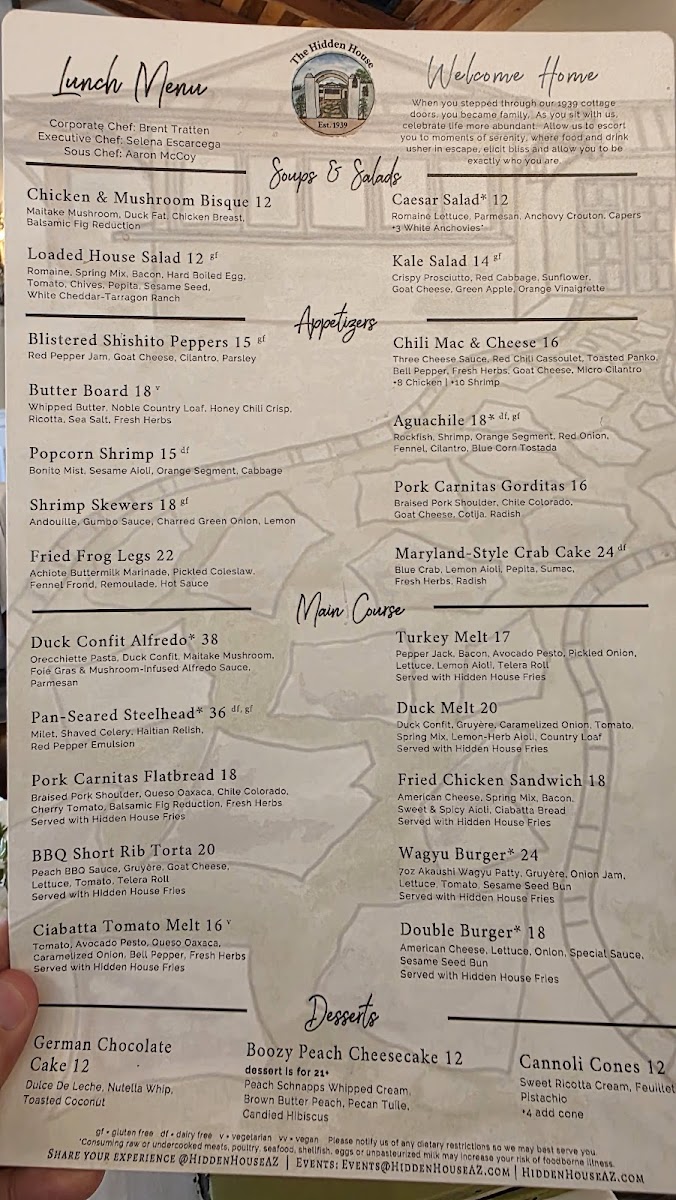 Lunch Menu
Corporate Chef: Brent Tratten
Executive Chef: Selena Escarcega
Sous Chef: Aaron McCoy
The Hidden House
Est. 1939
Welcome Home
When you stepped through our 1939 cottage
doors, you became family. As you sit with us,
celebrate life more abundant. Allow us to escort
you to moments of serenity, where food and drink
usher in escape, elicit bliss and allow you to be
exactly who you are.
Soups & Salads
Chicken & Mushroom Bisque 12
Maitake Mushroom, Duck Fat, Chicken Breast,
Balsamic Fig Reduction
Loaded House Salad 12 gf
Romaine, Spring Mix, Bacon, Hard Boiled Egg,
Tomato, Chives, Pepita, Sesame Seed,
White Cheddar-Tarragon Ranch
Caesar Salad* 12
Romaine Lettuce, Parmesan, Anchovy Crouton, Capers
+3 White Anchovies*
Kale Salad 14 gf
Crispy Prosciutto, Red Cabbage, Sunflower,
Goat Cheese, Green Apple, Orange Vinaigrette
Appetizers
Blistered Shishito Peppers 15 gf
Red Pepper Jam, Goat Cheese, Cilantro, Parsley
Butter Board 18 v
Whipped Butter, Noble Country Loaf, Honey Chili Crisp,
Ricotta, Sea Salt, Fresh Herbs
Popcorn Shrimp 15 df
Bonito Mist, Sesame Aioli, Orange Segment, Cabbage
Shrimp Skewers 18 gf
Andouille, Gumbo Sauce, Charred Green Onion, Lemon
Fried Frog Legs 22
Achiote Buttermilk Marinade, Pickled Coleslaw,
Fennel Frond, Remoulade, Hot Sauce
Chili Mac & Cheese 16
Three Cheese Sauce, Red Chili Cassoulet, Toasted Panko,
Bell Pepper, Fresh Herbs, Goat Cheese, Micro Cilantro
+8 Chicken | +10 Shrimp
Aguachile 18* df, gf
Rockfish, Shrimp, Orange Segment, Red Onion,
Fennel, Cilantro, Blue Corn Tostada
Pork Carnitas Gorditas 16
Braised Pork Shoulder, Chile Colorado,
Goat Cheese, Cotija, Radish
Maryland-Style Crab Cake 24 df
Blue Crab, Lemon Aioli, Pepita, Sumac,
Fresh Herbs, Radish
Main Course
Duck Confit Alfredo* 38
Orecchiette Pasta, Duck Confit, Maitake Mushroom,
Foie Gras & Mushroom-Infused Alfredo Sauce,
Parmesan
Pan-Seared Steelhead* 36 df, gf
Milet, Shaved Celery, Haitian Relish,
Red Pepper Emulsion
Pork Carnitas Flatbread 18
Braised Pork Shoulder, Queso Oaxaca, Chile Colorado,
Cherry Tomato, Balsamic Fig Reduction, Fresh Herbs
Served with Hidden House Fries
BBQ Short Rib Torta 20
Peach BBQ Sauce, Gruyère, Goat Cheese,
Lettuce, Tomato, Telera Roll
Served with Hidden House Fries
Ciabatta Tomato Melt 16 v
Tomato, Avocado Pesto, Queso Oaxaca,
Caramelized Onion, Bell Pepper, Fresh Herbs
Served with Hidden House Fries
Turkey Melt 17
Pepper Jack, Bacon, Avocado Pesto, Pickled Onion,
Lettuce, Lemon Aioli, Telera Roll
Served with Hidden House Fries
Duck Melt 20
Duck Confit, Gruyère, Caramelized Onion, Tomato,
Spring Mix, Lemon-Herb Aioli, Country Loaf
Served with Hidden House Fries
Fried Chicken Sandwich 18
American Cheese, Spring Mix, Bacon,
Sweet & Spicy Aioli, Ciabatta Bread
Served with Hidden House Fries
Wagyu Burger* 24
7oz Akaushi Wagyu Patty, Gruyère, Onion Jam,
Lettuce, Tomato, Sesame Seed Bun
Served with Hidden House Fries
Double Burger* 18
American Cheese, Lettuce, Onion, Special Sauce,
Sesame Seed Bun
Served with Hidden House Fries
Desserts
German Chocolate
Cake 12
Dulce De Leche, Nutella Whip,
Toasted Coconut
Boozy Peach Cheesecake 12
dessert is for 21+
Peach Schnapps Whipped Cream,
Brown Butter Peach, Pecan Tuile,
Candied Hibiscus
Cannoli Cones 12
Sweet Ricotta Cream, Feuillet
Pistachio
+4 add cone
gf • gluten free df • dairy free v • vegetarian vv • vegan Please notify us of any dietary restrictions so we may best serve you.
*Consuming raw or undercooked meats, poultry, seafood, shellfish, eggs or unpasteurized milk may increase your risk of foodborne illness.
Share your experience @HiddenHouseAZ | Events: Events@HiddenHouseAZ.com | HiddenHouseAZ.com